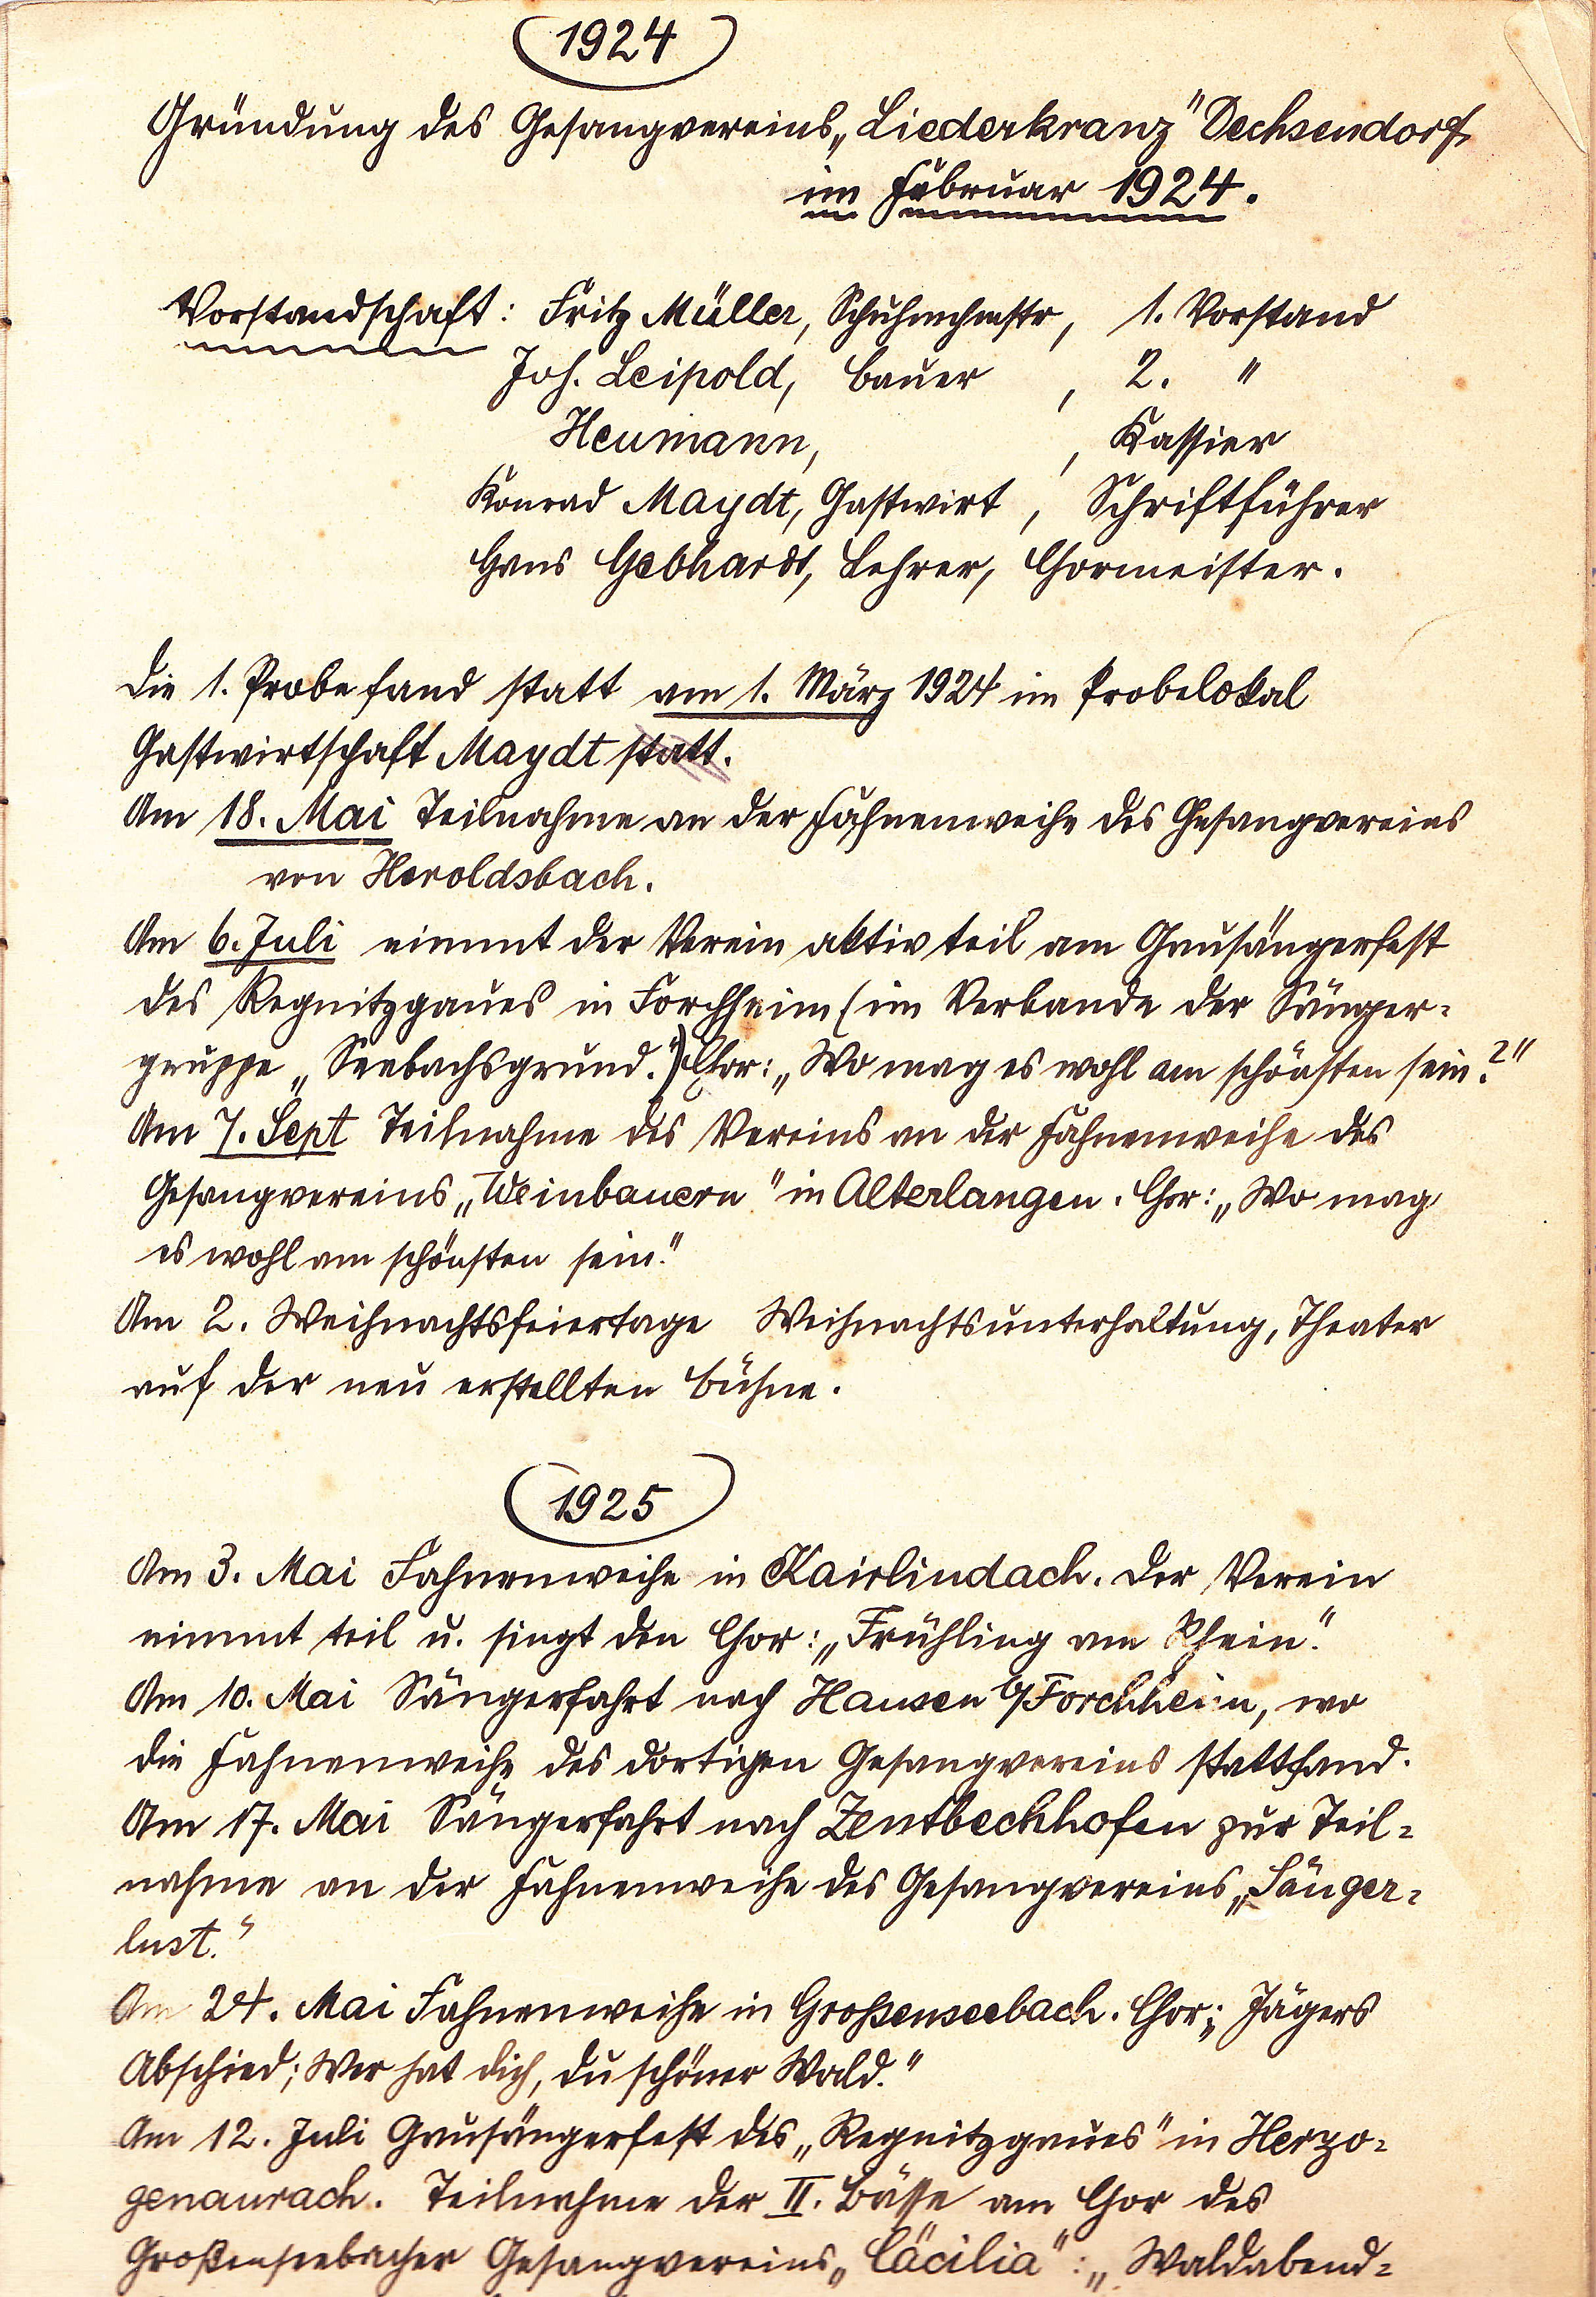 1924
Gründung des Gesangvereins „Liederkranz" Dechsendorf
im Februar 1924.
Vorstandschaft: Fritz Müller, Schuhmchmstr, 1. Vorstand
Joh. Leipold, Bauer , 2. "
Heumann, , Kassier
Konrad Maydt, Gastwirt , Schriftführer
Hans Gebhardt, Lehrer, Chormeister.
Die 1. Probe fand statt am 1. März 1924 im Probelokal
Gastwirtschaft Maydt statt.
Am 18. Mai Teilnahme an der Fahnenweihe des Gesangvereins
von Heroldsbach.
Am 6. Juli nimmt der Verein aktiv teil am Gausängerfest
des Regnitzgaues in Forchheim (im Verbande der Sänger-
gruppe „Seebachsgrund".) Chor: „Wo mag es wohl am schönsten sein?"
Am 7. Sept Teilnahme des Vereins an der Fahnenweihe des
Gesangvereins „Weinbauern" in Alterlangen. Chor: „Wo mag
es wohl am schönsten sein."
Am 2. Weihnachtsfeiertage Weihnachtsunterhaltung, Theater
auf der neu erstellten Bühne.
1925
Am 3. Mai Fahnenweihe in Kairlindach. Der Verein
nimmt teil u. singt den Chor: „Frühling am Rhein".
Am 10. Mai Sängerfahrt nach Hausen b/Forchheim, wo
die Fahnenweihe des dortigen Gesangvereins stattfand.
Am 17. Mai Sängerfahrt nach Zentbechhofen zur Teil-
nahme an der Fahnenweihe des Gesangvereins „Sänger-
lust."
Am 24. Mai Fahnenweihe in Großenseebach. Chor: Jägers
Abschied; Wer hat dich, du schöner Wald."
Am 12. Juli Gausängerfest des „Regnitzgaues" in Herzo-
genaurach. Teilnahme der II. Bässe am Chor des
Großenseebacher Gesangvereins „Cäcilia": „Waldabend-